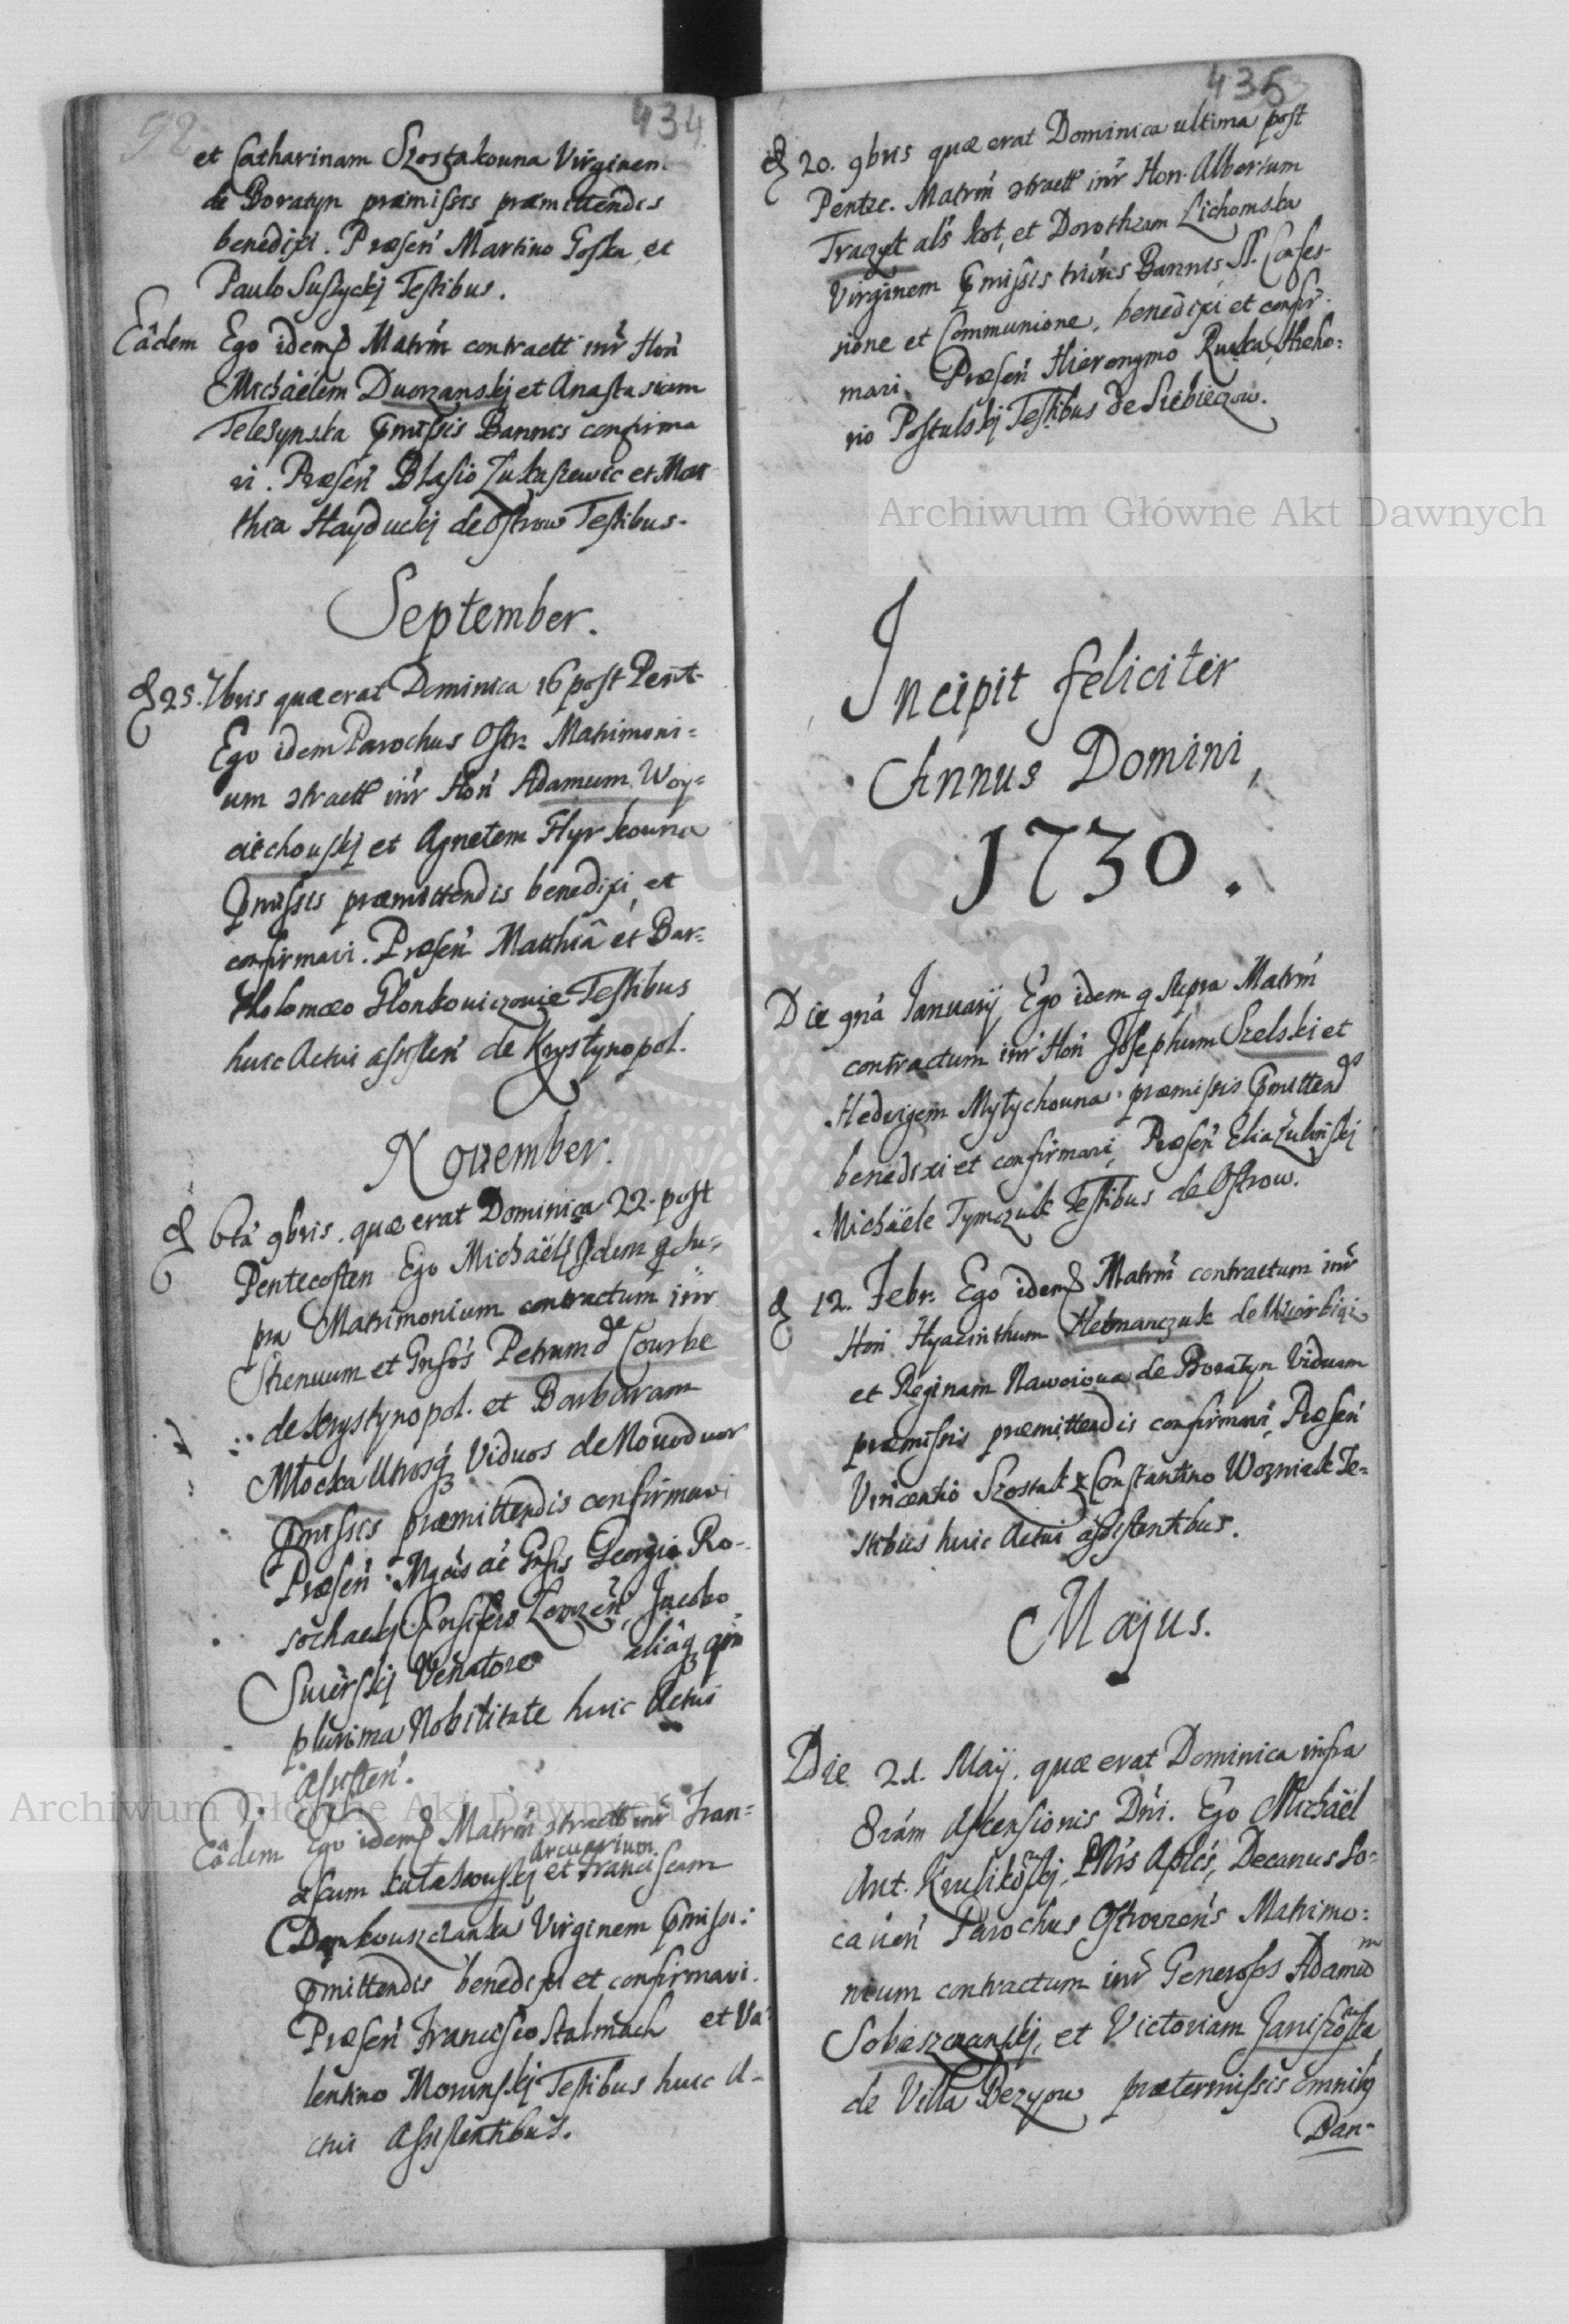 92
434
et Catharinam Szostakouna Virginem
de Boratyn præmissis præmittendis
benedixi. Præsen Martino Goska et
Paulo Suszyckj Testibus.
Eâdem Ego idemq Matrm contractt intr Hon
Michäelem Duorzanskj et Anastasiam
Teleżynska pmissis Bannis confirma
vi. Præsen Blasio Łukaszewic et Mat
thia Hayduckj de Ostrow Testibus.
September.
d 25. 7bris quæ erat Dominica 16 post Pent.
Ego idem Parochus Ostr. Matrimoni=
um ɔtractt intr Hon Adamum Woy=
ciechouskj et Agnetem Hyrkouna
pmissis præmittendis benedixi, et
confirmavi. Præsen Matthiâ et Bar=
tholomæo Hlonkouiczouie Testibus
huic Actui assisten de Krystynopol.
November.
d 6ta 9bris. quæ erat Dominica 22. post
Pentecosten Ego Michäel Idem q su=
pra Matrimonium contractum intr
Strenuum et Gnsos Petrum de Courbe
de Krystynopol. et Barbaram
Młocka Utrosq Viduos de Nouoduor
pmissis præmittendis confirmavi
Præsen Mgcis ac Gnsis Georgio Ro-
sochackj Ensifero Jacobo
Swierskj Venatore aliaq qm
plurima Nobilitate huic Actui
assisten.
Eâdem Ego idemq Matrm ɔtractt intr Fran=
Arcuarium
ciscum Kułakouskj et Franciscam
Dankouszczanka Virginem pmissi:
pmittendis benedixi et confirmavi.
Præsen Francisco Stalmach et Va=
lentino Morinskj Testibus huic A-
ctui Assistentibus.
435
d 20. 9bris quæ erat Dominica ultima post
Pentec. Matrm ɔtractt intr Hon. Albertum
Tragyt als Kot, et Dorotheam Lichomska
Virginem pmissis trinis Bannis, SS. Confes-
sione et Communione, benedixi et confir=
mavi, Præsen Hieronymo Ruska, Hreho=
rio Postulskj Testibus de Siebieczow.
Incipit feliciter
Annus Domini,
1730.
Die 9na Januarÿ Ego idem q supra Matrm
contractum intr Hon Josephum Szelski et
Hedvigem Mytychouna præmissis pmittendis
benedixi et confirmavi, Præsen Elia Żulinskj
Michäele Tymczuk Testibus de Ostrow.
d 12. Febr. Ego idemq Matrm contractum intr
Hon Hyacinthum Hetmanczuk de Wierbiąz
et Reginam Nawoiova de Boratyn Viduam
præmissis præmittendis confirmavi, Præsen
Vincentio Szostak et Constantino Wozniak Te=
stibus huic Actui assistentibus.
Majus.
Die 21. Maÿ. quæ erat Dominica infra
8vam Ascensionis Dni. Ego Michäel
Ant. Krulikoskj, PNris Aplcs, Decanus So=
calien Parochus Ostrovens Matrimo:
nium contractum intr Generosos Adamum
Sobieszczanskj, et Victoriam Janiszoska
de Villa Bezyow prætermissis omnibq
Ban-
Archiwum Główne Akt Dawnych
Archiwum Główne Akt Dawnych